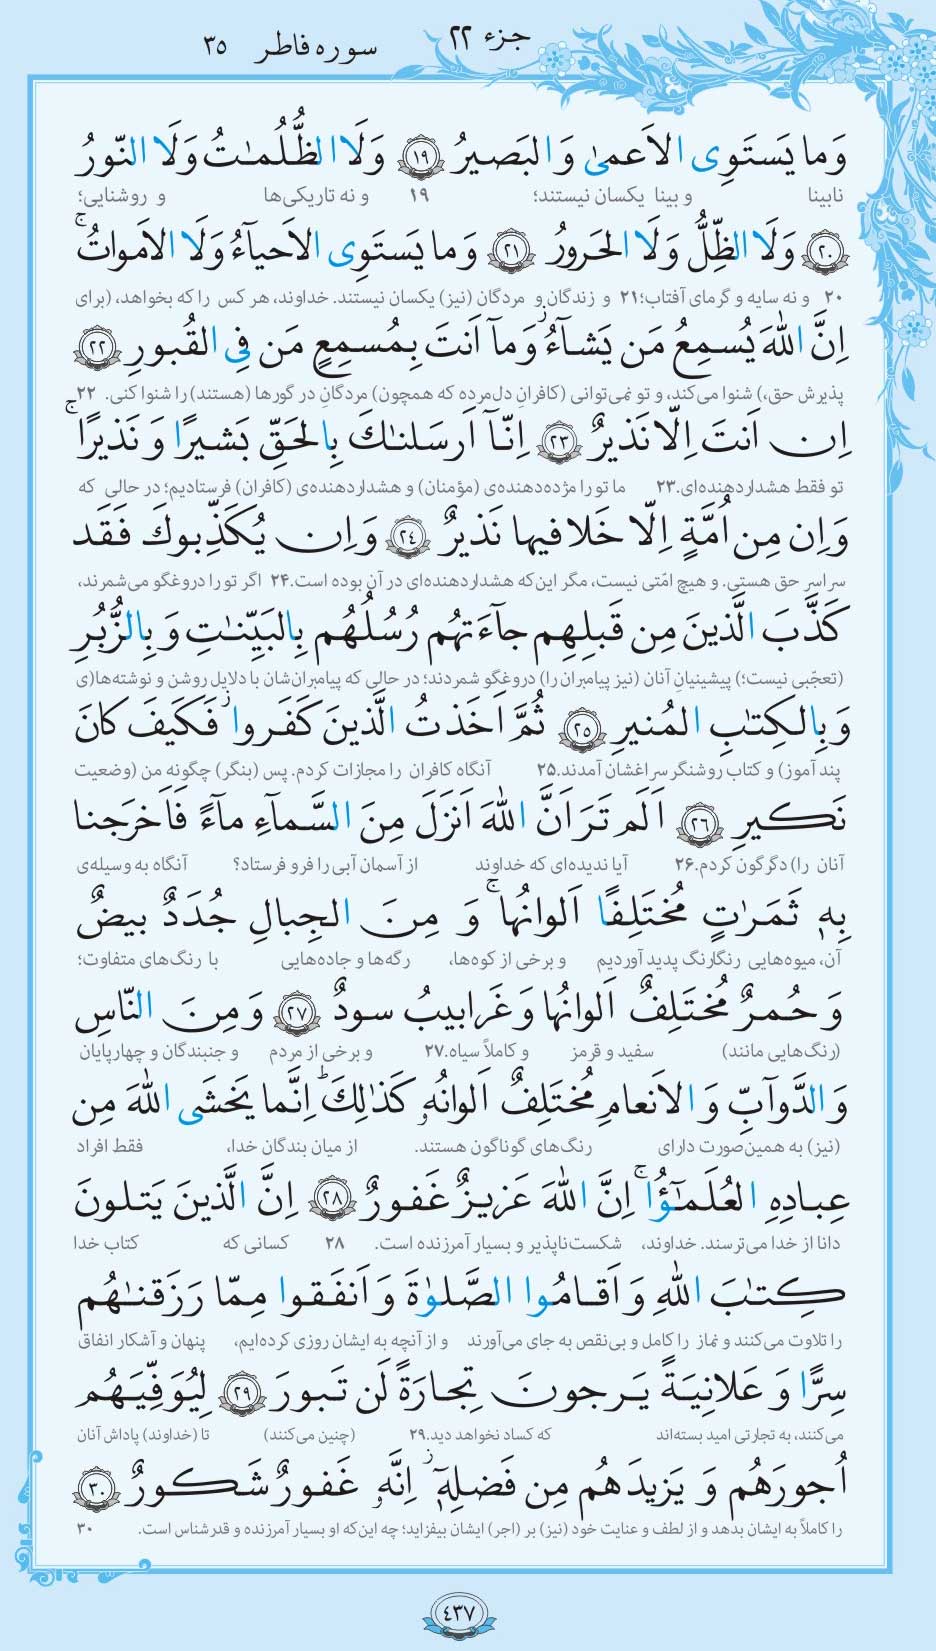 جزء ۲۲
سوره فاطر ۳۵
وَما یَستَوِی الاَعمیٰ وَ البَصیرُ ﴿۱۹﴾ وَلَا الظُّلُمـٰتُ وَلَا النّورُ
نابینا و بینا یکسان نیستند؛ ۱۹ و نه تاریکی‌ها و روشنایی؛
﴿۲۰﴾ وَلَا الظِّلُّ وَلَا الحَرورُ ﴿۲۱﴾ وَما یَستَوِی الاَحیآءُ وَلَا الاَمواتُ ۚ
۲۰ و نه سایه و گرمای آفتاب؛ ۲۱ و زندگان و مردگان (نیز) یکسان نیستند. خداوند، هر کس را که بخواهد، (برای
اِنَّ اللّٰهَ یُسمِعُ مَن یَشآءُ ۖ وَمآ اَنتَ بِمُسمِعٍ مَن فِی القُبورِ ﴿۲۲﴾
پذیرش حق،) شنوا می‌کند، و تو نمی‌توانی (کافرانِ دل‌مرده که همچون) مردگانِ در گورها (هستند) را شنوا کنی. ۲۲
اِن اَنتَ اِلّا نَذیرٌ ﴿۲۳﴾ اِنّآ اَرسَلنـٰكَ بِالحَقِّ بَشیرًا وَ نَذیرًا ۚ
تو فقط هشداردهنده‌ای. ۲۳ ما تو را مژده‌دهنده‌ی (مؤمنان) و هشداردهنده‌ی (کافران) فرستادیم؛ در حالی که
وَاِن مِن اُمَّةٍ اِلّا خَلا فیها نَذیرٌ ﴿۲۴﴾ وَ اِن یُكَذِّبوكَ فَقَد
سراسر حق هستی. و هیچ امّتی نیست، مگر این‌که هشداردهنده‌ای در آن بوده است. ۲۴ اگر تو را دروغگو می‌شمرند،
كَذَّبَ الَّذینَ مِن قَبلِهِم جآءَتهُم رُسُلُهُم بِالبَیِّنـٰتِ وَ بِالزُّبُرِ
(تعجّبی نیست؛) پیشینیانِ آنان (نیز پیامبران را) دروغگو شمردند؛ در حالی که پیامبران‌شان با دلایل روشن و نوشته‌ها(ی
وَ بِالكِتـٰبِ المُنیرِ ﴿۲۵﴾ ثُمَّ اَخَذتُ الَّذینَ كَفَروا ۖ فَكَیفَ كانَ
پند آموز) و کتاب روشنگر سراغشان آمدند. ۲۵ آنگاه کافران را مجازات کردم. پس (بنگر) چگونه من (وضعیت
نَكیرِ ﴿۲۶﴾ اَلَم تَرَ اَنَّ اللّٰهَ اَنزَلَ مِنَ السَّمآءِ مآءً فَاَخرَجنا
آنان را) دگرگون کردم. ۲۶ آیا ندیده‌ای که خداوند از آسمان آبی را فرو فرستاد؟ آنگاه به وسیله‌ی
بِهٖ ثَمَرٰتٍ مُختَلِفًا اَلوانُها ۚ وَ مِنَ الجِبالِ جُدَدٌ بیضٌ
آن، میوه‌هایی رنگارنگ پدید آوردیم و برخی از کوه‌ها، رگه‌ها و جاده‌هایی با رنگ‌های متفاوت؛
وَ حُمرٌ مُختَلِفٌ اَلوانُها وَ غَرابیبُ سودٌ ﴿۲۷﴾ وَ مِنَ النّاسِ
(رنگ‌هایی مانند) سفید و قرمز و کاملاً سیاه. ۲۷ و برخی از مردم و جنبندگان و چهارپایان
وَ الدَّوآبِّ وَ الاَنعامِ مُختَلِفٌ اَلوانُهٗ كَذٰلِكَ ؕ اِنَّما یَخشَی اللّٰهَ مِن
(نیز) به همین‌صورت دارای رنگ‌های گوناگون هستند. از میان بندگان خدا، فقط افراد
عِبادِهِ العُلَمـٰٓؤُا ۚ اِنَّ اللّٰهَ عَزیزٌ غَفورٌ ﴿۲۸﴾ اِنَّ الَّذینَ یَتلونَ
دانا از خدا می‌ترسند. خداوند، شکست‌ناپذیر و بسیار آمرزنده است. ۲۸ کسانی که کتاب خدا
كِتـٰبَ اللّٰهِ وَ اَقامُوا الصَّلوٰةَ وَ اَنفَقوا مِمّا رَزَقنـٰهُم
را تلاوت می‌کنند و نماز را کامل و بی‌نقص به جای می‌آورند و از آنچه به ایشان روزی کرده‌ایم، پنهان و آشکار انفاق
سِرًّا وَ عَلانِیَةً یَرجونَ تِجارَةً لَن تَبورَ ﴿۲۹﴾ لِیُوَفِّیَهُم
می‌کنند، به تجارتی امید بسته‌اند که کساد نخواهد دید. ۲۹ (چنین می‌کنند) تا (خداوند) پاداش آنان
اُجورَهُم وَ یَزیدَهُم مِن فَضلِهٖٓ ۚ اِنَّهٗ غَفورٌ شَكورٌ ﴿۳۰﴾
را کاملاً به ایشان بدهد و از لطف و عنایت خود (نیز) بر (اجر) ایشان بیفزاید؛ چه این‌که او بسیار آمرزنده و قدرشناس است. ۳۰
۴۳۷